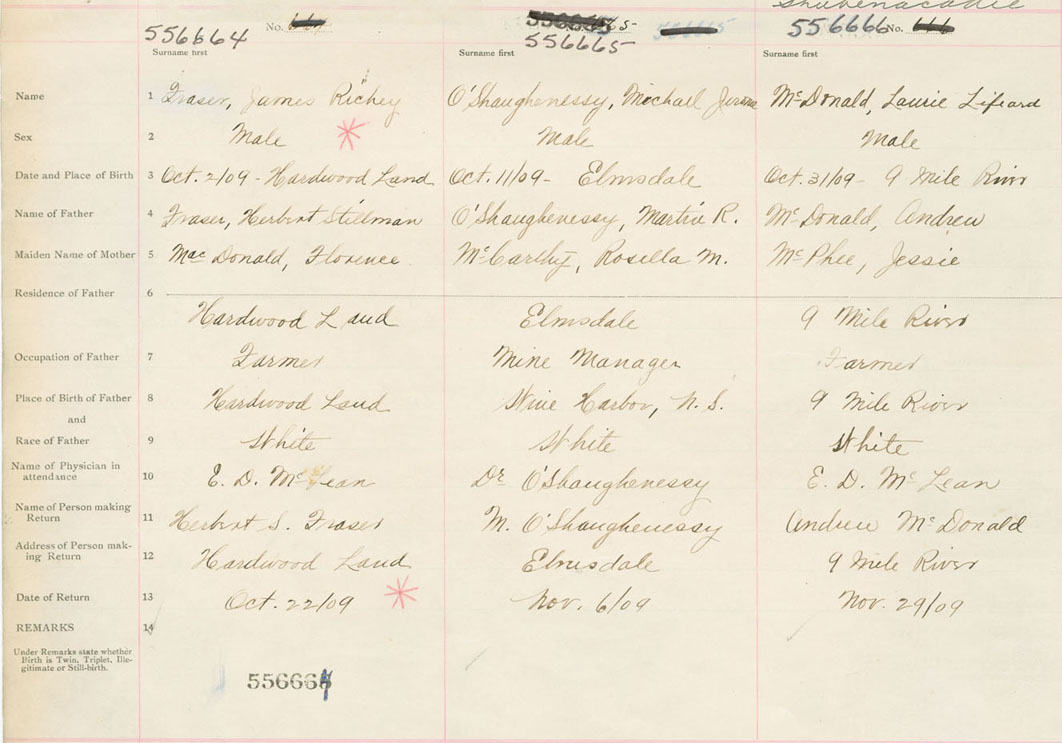 Shubenacadie
556664 No.
556665
No. 556665
556666 No. 666
Surname first Surname first Surname first
Name 1 Fraser, James Richey O'Shaughenessy, Michael Jerome McDonald, Laurie Lifeard
Sex 2 Male Male Male
Date and Place of Birth 3 Oct. 2/09 - Hardwood Land Oct. 11/09 - Elmsdale Oct. 31/09 - 9 Mile River
Name of Father 4 Fraser, Herbert Stillman O'Shaughenessy, Martin R. McDonald, Andrew
Maiden Name of Mother 5 MacDonald, Florence McCarthy, Rosella M. McPhee, Jessie
Residence of Father 6
Hardwood Land Elmsdale 9 Mile River
Occupation of Father 7 Farmer Mine Manager Farmer
Place of Birth of Father 8 Hardwood Land Wine Harbor, N. S. 9 Mile River
and
Race of Father 9 White White White
Name of Physician in
attendance 10 E. D. McLean Dr O'Shaughenessy E. D. McLean
Name of Person making
Return 11 Herbert S. Fraser M. O'Shaughenessy Andrew McDonald
Address of Person mak-
ing Return 12 Hardwood Land Elmsdale 9 Mile River
Date of Return 13 Oct. 22/09 Nov. 6/09 Nov. 29/09
REMARKS 14
Under Remarks state whether
Birth is Twin, Triplet, Ille-
gitimate or Still-birth.
556664